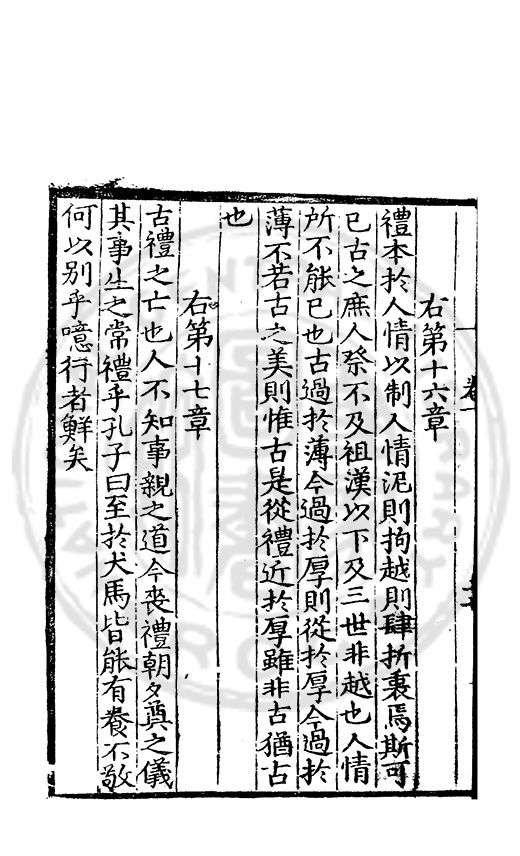 卷一
右第十六章
禮本於人情以制人情泥則拘越則肆折衷焉斯可
已古之庶人祭不及祖漢以下及三世非越也人情
所不能已也古過於薄今過於厚則從於厚今過於
薄不若古之美則惟古是從禮近於厚雖非古猶古
也
右第十七章
古禮之亡也人不知事親之道今喪禮朝夕奠之儀
其事生之常禮乎孔子曰至於犬馬皆能有養不敬
何以別乎噫行者鮮矣